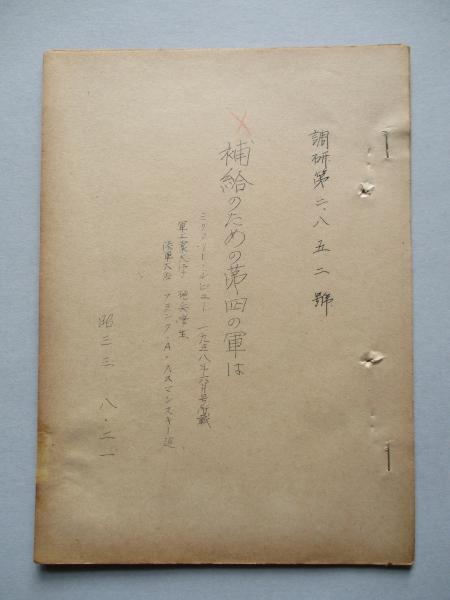 調研第二、八五二號
補給のための第四の軍は
ミリタリー・レビュー 一九五八年六月号所載
軍工業大学 学生
陸軍大佐 フランク・A・オスマンスキー述
昭三三 八・二一